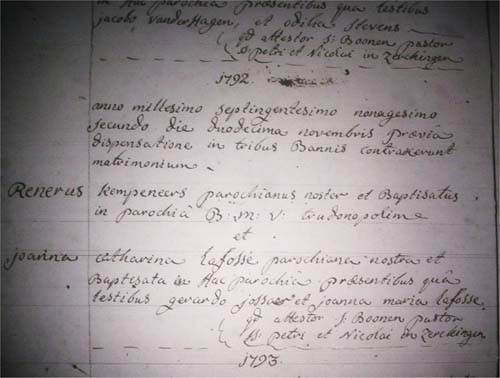 in hac parochia præsentibus quâ testibus
jacobo vanderHagen, et odilia Stevens
qd attestor S: Boonen pastor
SS petri et Nicolai in Zerckingen
1792
anno millesimo septingentesimo nonagesimo
secundo die duodecima novembris prævia
dispensatione in tribus Bannis contraxerunt
matrimonium
Renerus kempeneers parochianus noster et Baptisatus
in parochiâ B: M: V: trudonopoli
et
joanna catharina Lafosse parochiana nostra et
Baptisata in Hac parochiâ præsentibus quâ
testibus gerardo et joanna maria Lafosse
qd attestor S: Boonen pastor
SS petri et Nicolai in Zerckingen
1793